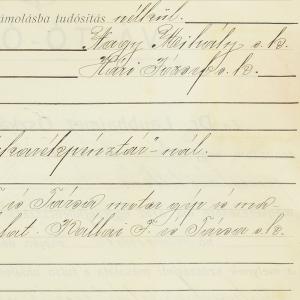 ámolásba tudósítás nélkül.
Nagy Mihály s. k.
Házi József s. k.
karékpénztár"-nál.
és Társa motor gép és ma
lat. Kállai F. és Társa s. k.